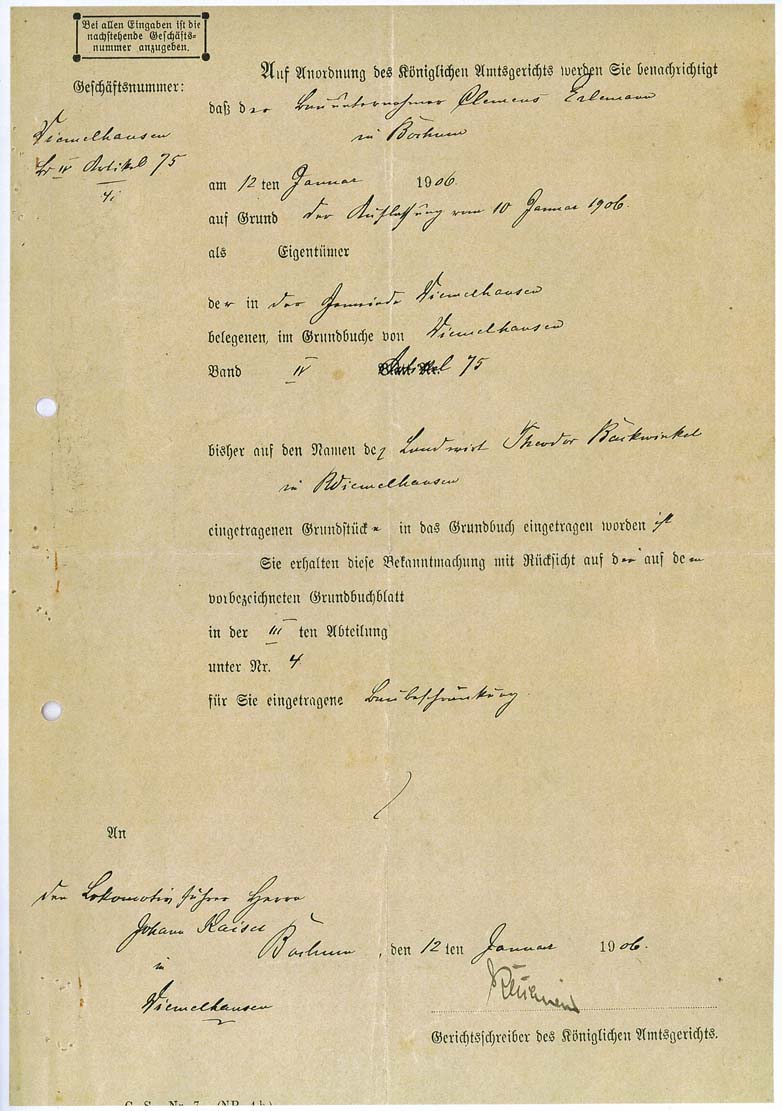 Bei allen Eingaben ist die
nachstehende Geschäfts-
nummer anzugeben.
Geschäftsnummer:
Wiemelhausen
Bd IV Artikel 75
Auf Anordnung des Königlichen Amtsgerichts werden Sie benachrichtigt
daß der Bauunternehmer Clemens Erlemann
in Bochum
am 12 ten Januar 1906.
auf Grund der Auflassung vom 10 Januar 1906.
als Eigentümer
der in der Gemeinde Wiemelhausen
belegenen, im Grundbuche von Wiemelhausen
Band IV Artikel 75
bisher auf den Namen des Landwirt Theodor
in Wiemelhausen
eingetragenen Grundstücke in das Grundbuch eingetragen worden ist
Sie erhalten diese Bekanntmachung mit Rücksicht auf die auf dem
vorbezeichneten Grundbuchblatt
in der III ten Abteilung
unter Nr. 4
für Sie eingetragene Baubeschränkung
An
den Lokomotivführer Herrn
Johann Kaiser
in
Wiemelhausen
Bochum, den 12 ten Januar 1906.
Gerichtsschreiber des Königlichen Amtsgerichts.